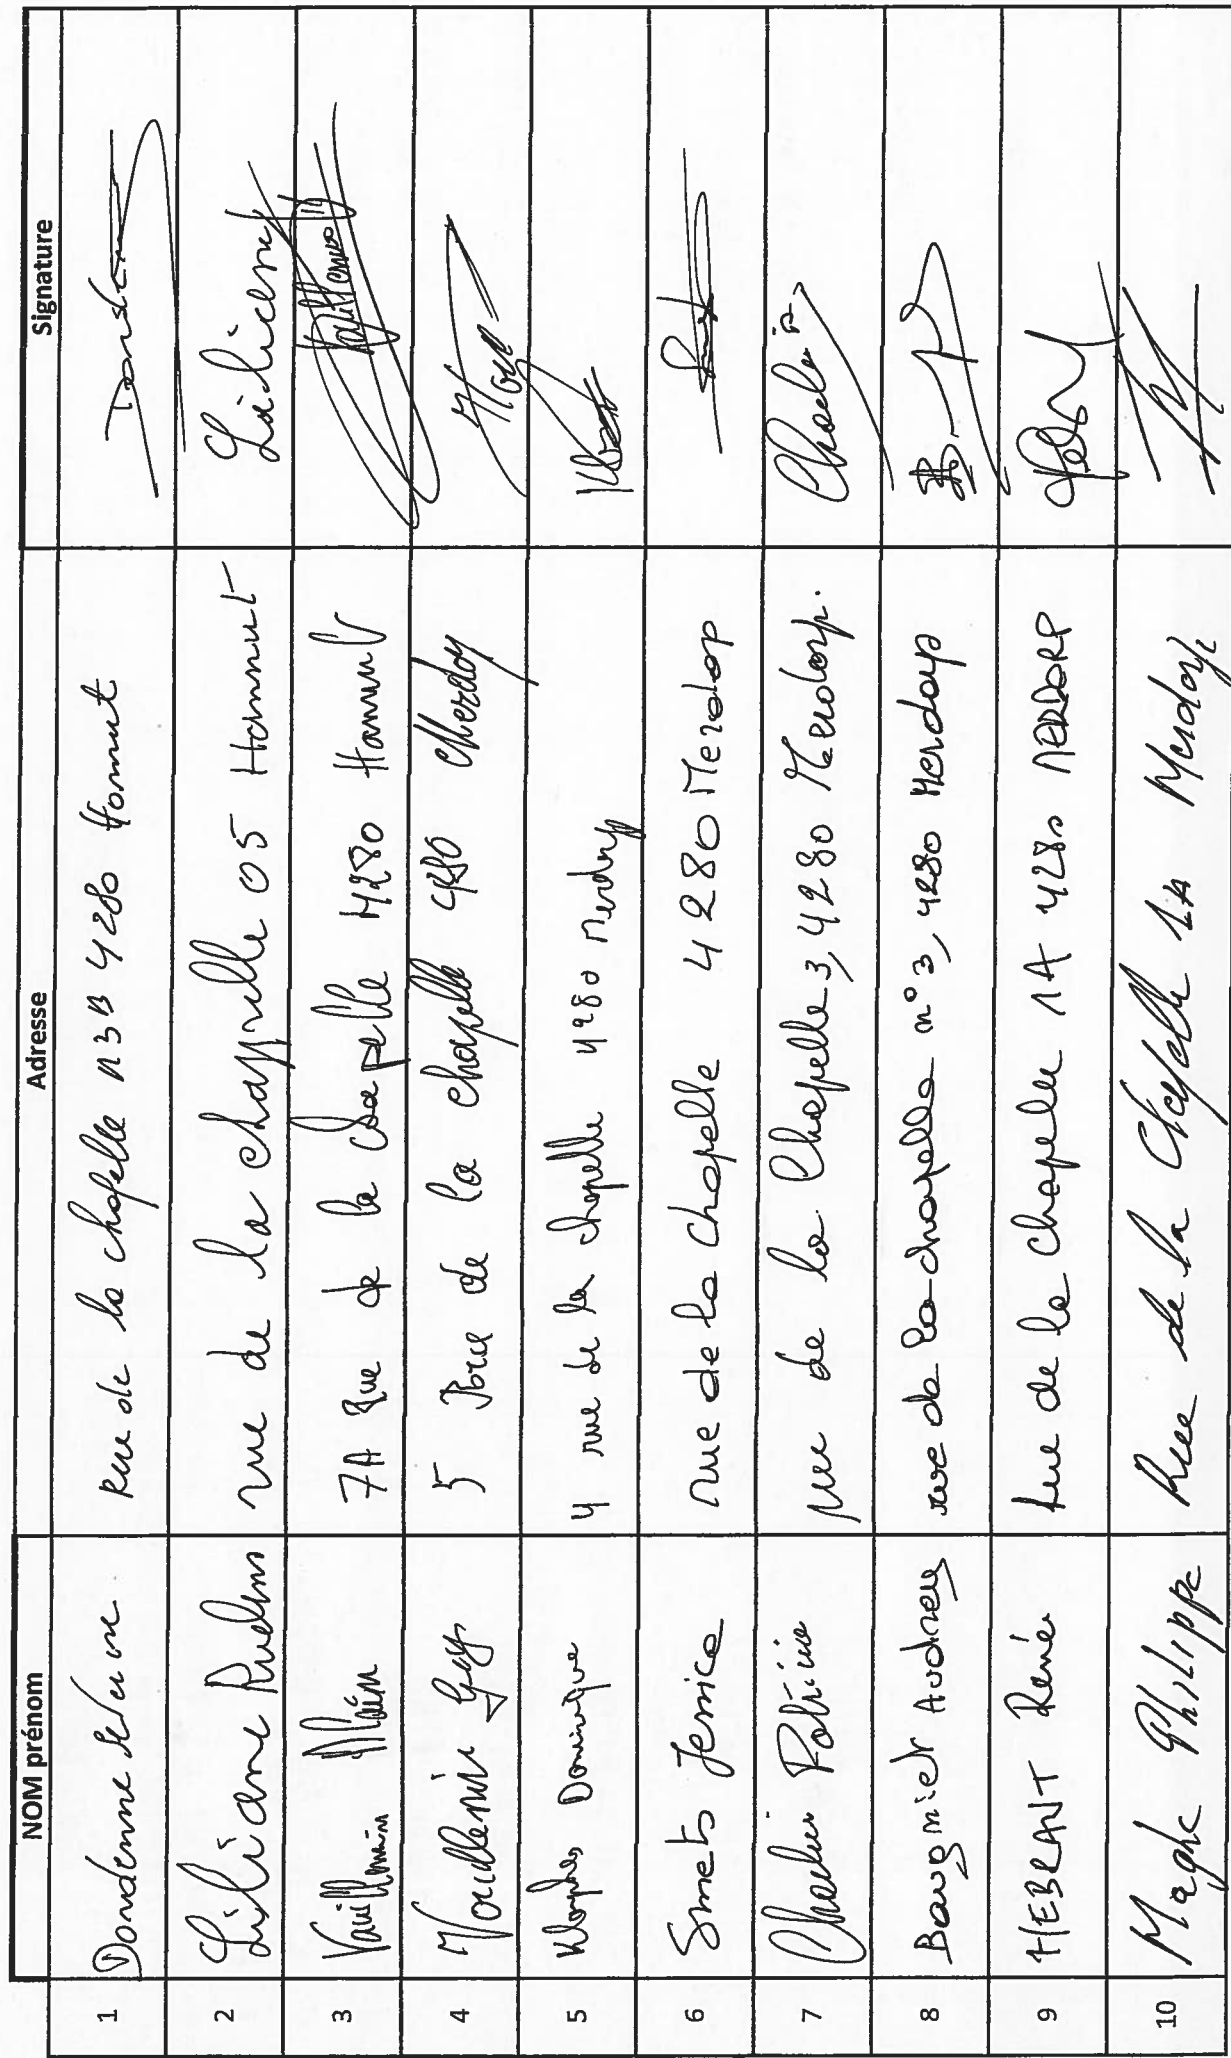 NOM prénom Adresse Signature
1 Dondenne rue de la chapelle n3B 4280 Hannut
2 Liliane rue de la chappelle 05 Hannut
3 Vauillemin Alain 7A Rue de la chapelle 4280 Hannut
4 Vouillemin Guy 5 rue de la chapelle 4280 Merdorp
5 Dominique 4 rue de la chapelle 4280 Merdorp
6 Smets Jessica rue de la chapelle 4280 Merdop
7 Patricia rue de la Chapelle 3, 4280 Merdorp. Charlier
8 Baugniet Audrey rue de la chapelle n° 3, 4280 Merdorp
9 HEBRANT René rue de la chapelle 1A 4280 MERDORP
10 Maghe Philippe Rue de la Chapelle 1A Merdorp